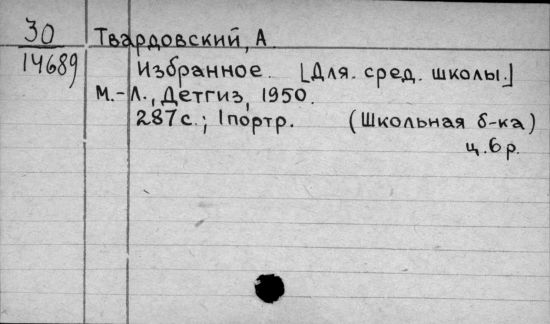 30
Твардовский, А
14689
Избранное. [Для. сред. школы.]
М.-Л., Детгиз, 1950.
287с.; 1портр. (Школьная б-ка)
ц.6р.